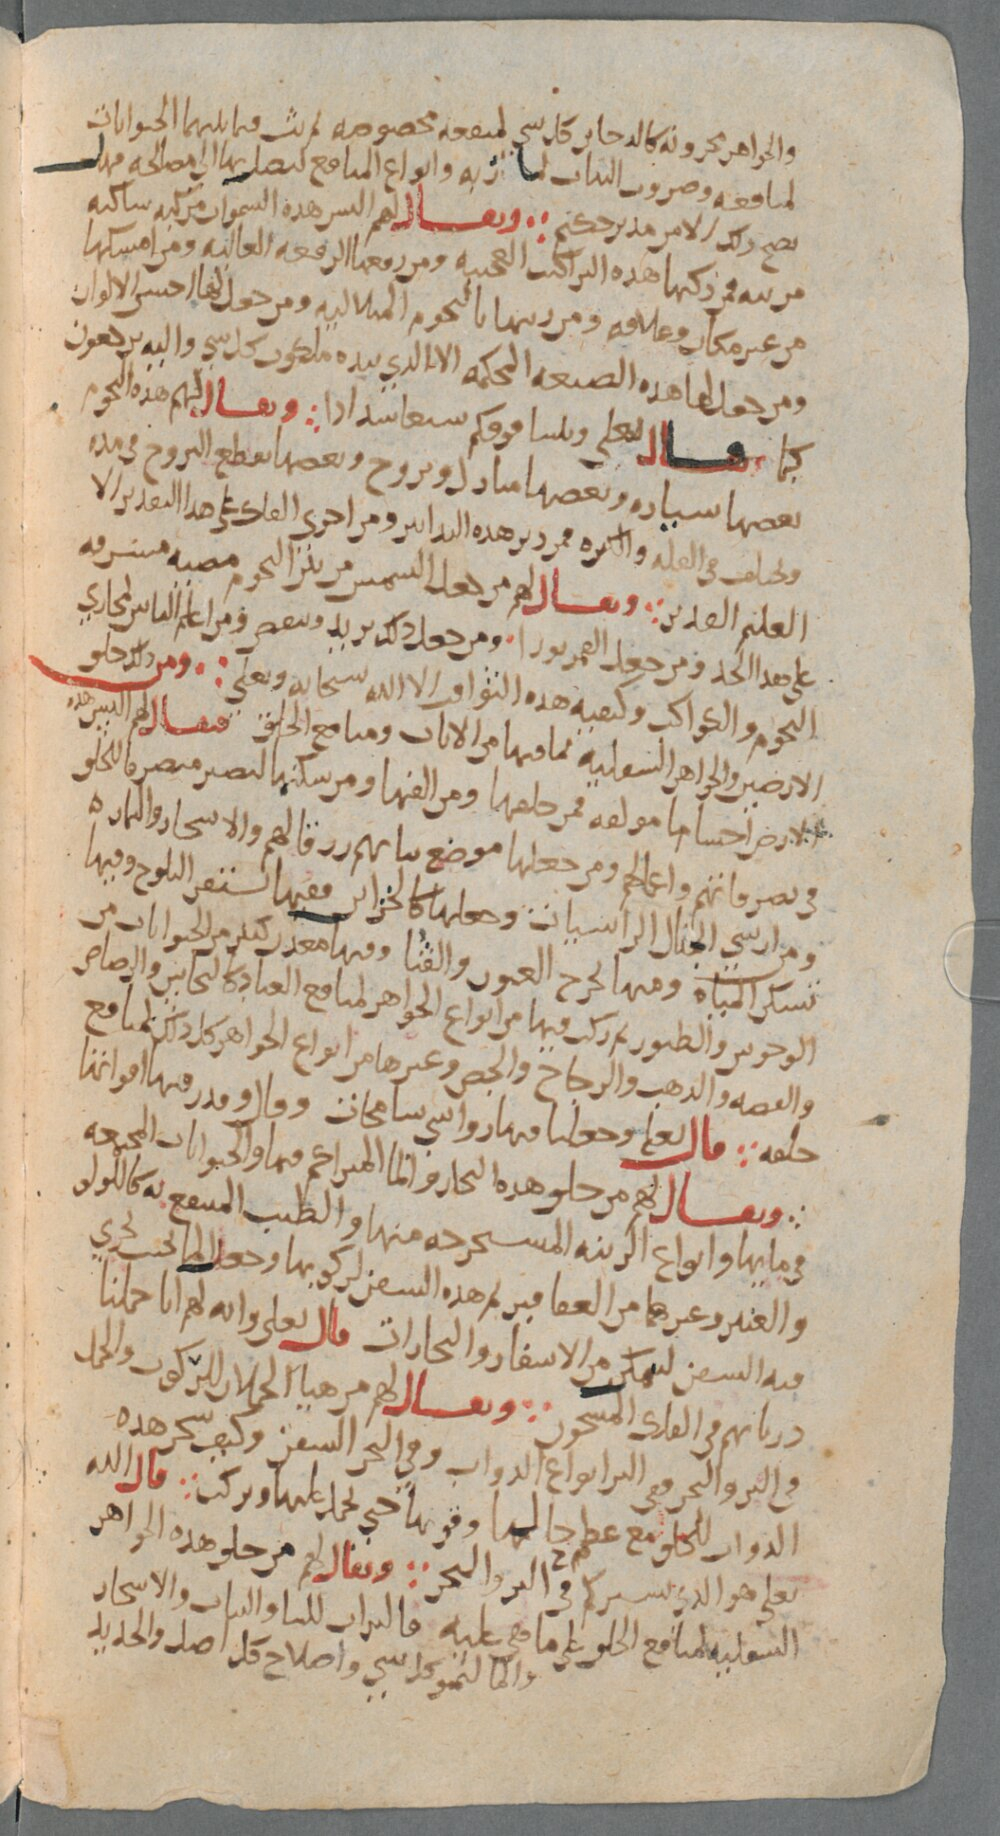 والجواهر مخزونة كالدخاير كل شي لمنفعه مخصوصه ثم بث فيما بينهما الحيوانات
لمنافعه وضروب النبات لمآربه وانواع المنافع ليصل بها الى مصالحه فهل
يصح ذلك الا من مدبر حكيم ∴ ويقال لهم اليس هذه السموات مركبه ساكنه
مزينه فمن ركبها هذه التراكيب العجيبه ومن رفعها الرفعه العاليه ومن امسكها
من غير مكان وعلاقه ومن زينها بالنجوم المتلاليه ومن جعل لها احسن الالوان
ومن جعل لها هذه الصنعه المحكمه الا الذي بيده ملكوت كل شي واليه يرجعون
كما قال تعلى وبنينا فوقكم سبعا شدادا ∴ ويقال لهم هذه النجوم
بعضها سياره وبعضها منازل وبروج وبعضها يقطع البروج في مده
وتختلف في القله والكثره فمن دبر هذه التدابير ومن اجرى الفلك على هذا التقدير الا
العليم القدير ∴ ويقال لهم من جعل الشمس من بين النجوم مضيه مشرقه
على هذا الحد ومن جعل القمر نورا ومن جعل ذلك يزيد وينقص ومن اعلم الناس لمجاري
النجوم والكواكب وكيفيه هذه الثواقب الا الله سبحانه وتعلى ∴ ومن ذلك خلق
الارضين والجواهر السفليه بما فيها من الايات ومنافع الخلق فيقال لهم اليس هذه
الارض اجساما مولفه فمن خلقها ومن الفها ومن سكنها لتصير متصرفا للخلق
في تصرفاتهم واعمالهم ومن جعلها موضع نباتهم رزقا لهم والاشجار والثماره
ومن ارسى الجبال الراسيات وجعلها كالخزاين ففيها تستقر الثلوج وفيها
تسكن المياه ومنها تخرج العيون والقنا وفيها معدن كثير من الحيوانات من
الوحوش والطيور ثم ركب فيها من انواع الجواهر لمنافع العباد كالنحاس والرصاص
والفضه والذهب والزجاج والجص وغيرها من انواع الجواهر كل ذلك لمنافع
خلقه ∴ قال تعلى وجعلنا فيها رواسي شامخات وقال وقدر فيها اقواتها
∴ ويقال لهم من خلق هذه البحار والما المتراكم فيها والحيوانات المجتمعه
في مايها وانواع الزينه المستخرجه منها والطيب المنتفع به كاللولو
والعنبر وغيرهما من العقاقير ثم هذه السفن لركوبها وجعل الما بحيث تجري
فيه السفن ليتمكن من الاسفار والتجارات قال تعلى وايه لهم انا حملنا
ذرياتهم في الفلك المشحون ∴ ويقال لهم من هيا الحملان للركوب والحمل
في البر والبحر ففي البر انواع الدواب وفي البحر السفن وكيف سخر هذه
الدواب للخلق مع عظم حالها وقوتها حتى يحمل عليها ويركب ∴ قال الله
تعلى هو الذي يسيركم في البر والبحر ∴ ويقال لهم من خلق هذه الجواهر
السفليه لمنافع الخلق على ما هي عليه فالتراب للبنا والنبات والاشجار
والما لنمو كل شي واصلاح كل اصل والحديد